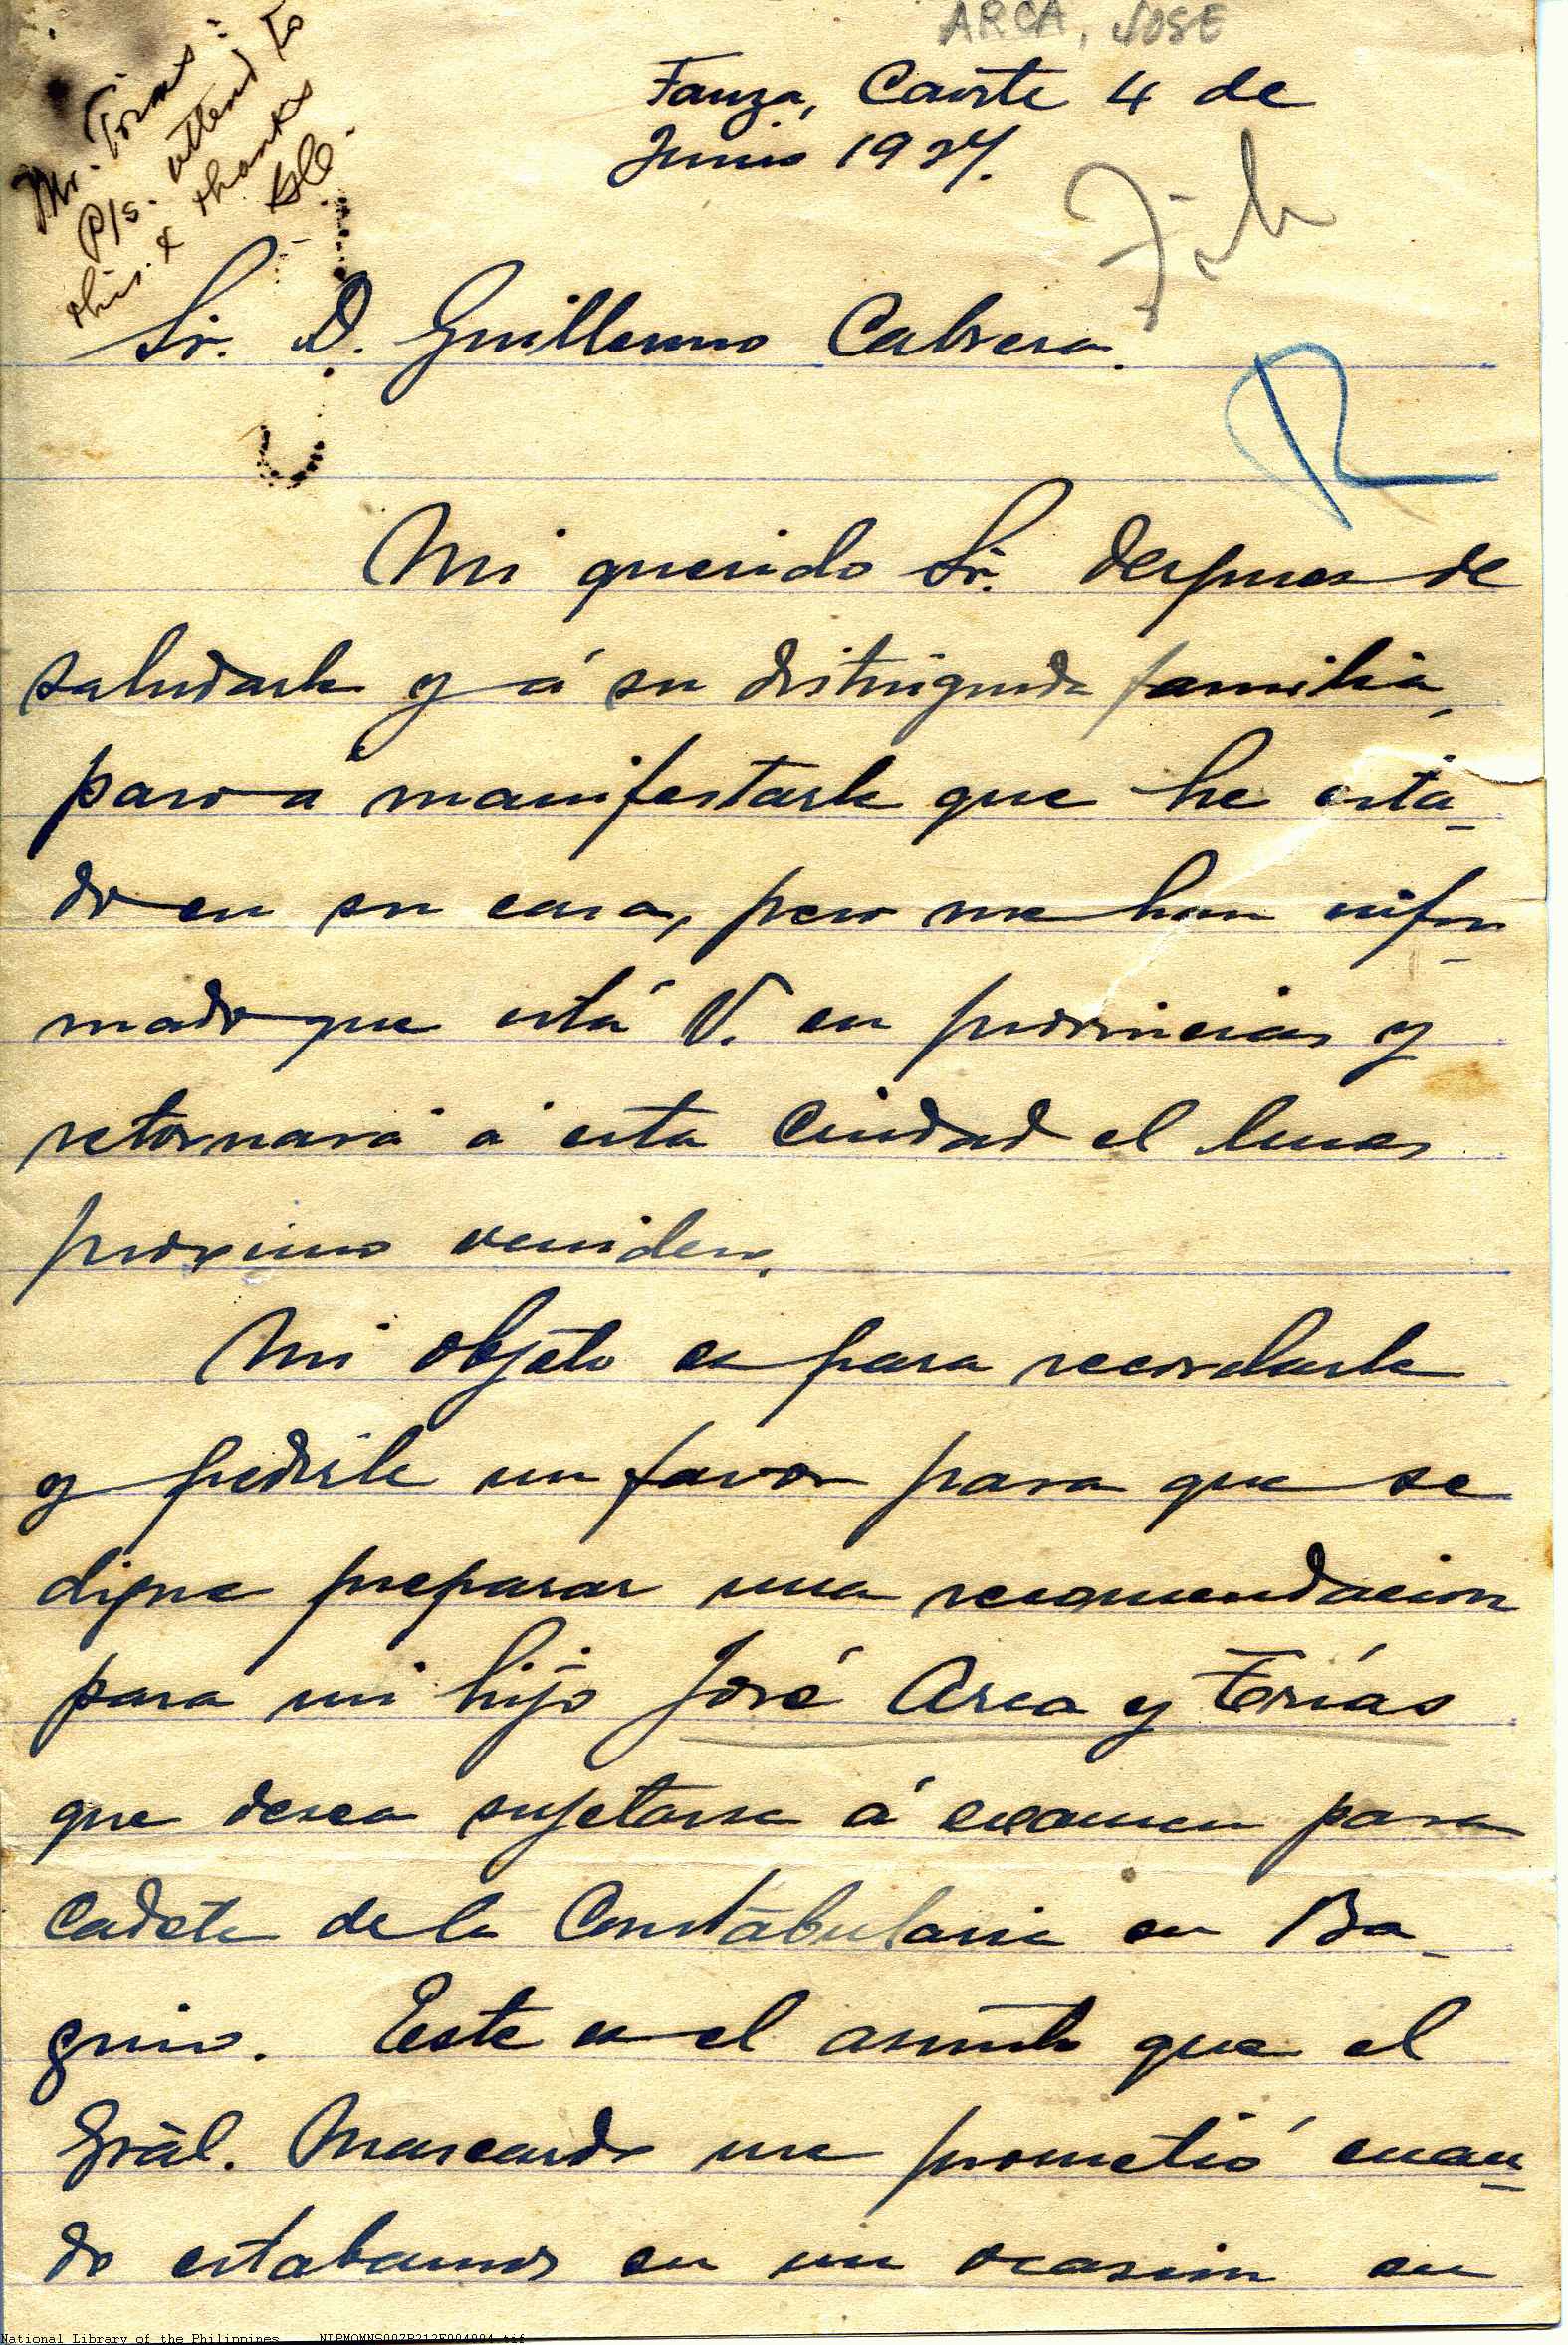 ARCA, JOSE
Mr. Torres:
Pls. attend to
this & thanks
Tanza, Cavite 4 de
Junio 1927.
File
Sr. D. Guillermo Cabrera.
R
Mi querido Sr. despues de
saludarle y á su distinguida familia,
paso a manifestarle que he esta-
do en su casa, pero me han infor-
mado que está V. en provincias y
retornará á esta Ciudad el lunes
proximo venidero.
Mi objeto es para recordarle
y pedirle un favor para que se
digne preparar una recomendacion
para mi hijo José Arca y Frías
que desea sujetarse á examen para
Cadete de la Constabularia en Ba-
guio. Este es el asunto que el
Grâl. Mascardo me prometió cuan-
do estabamos en un ocasion en
National Library of the Philippines NLPMQMNS007B212F004004.tif